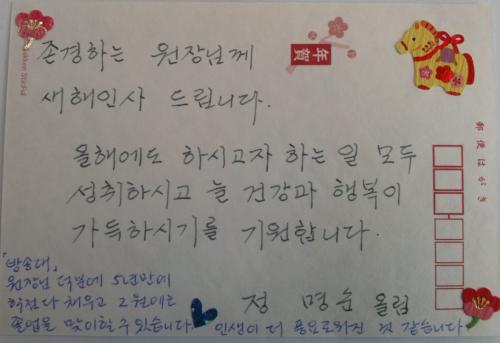 존경하는 원장님께
年賀
새해인사 드립니다.
郵便はがき
올해에도 하시고자 하는 일 모두
성취하시고 늘 건강과 행복이
가득하시기를 기원합니다.
정 명순 올림
「방송대」
원장님 덕분에 5년만에
학점 다 채우고 2월에는
졸업을 맞이할 수 있습니다
인생이 더 풍요로워진 것 같습니다